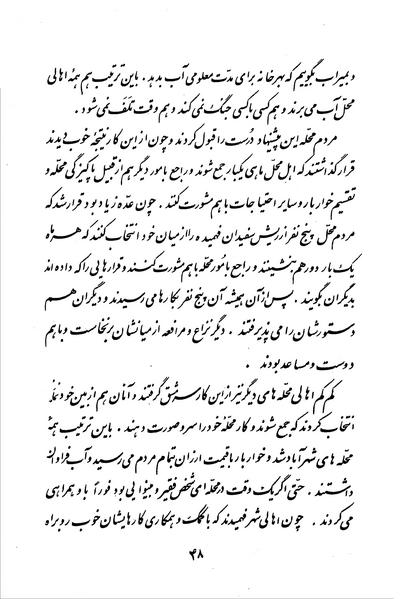 و بمیراب بگوییم که بهر خانه برای مدت معلومی آب بدهد. باین ترتیب هم همهٔ اهالی
محل آب می برند و هم کسی با کسی جنگ نمی کند و هم وقت تلف نمی شود.
مردم محله این پیشنهاد درست را قبول کردند و چون از این کار نتیجهٔ خوب دیدند
قرار گذاشتند که اهل محل ماهی یکبار جمع شوند و راجع بامور دیگر هم از قبیل پاکیزگی محله و
تقسیم خواربار و سایر احتیاجات با هم مشورت کنند. چون عده زیاد بود قرار شد که
مردم محل پنج نفر از ریش سفیدان فهمیده را از میان خود انتخاب کنند که هر ماه
یک بار دور هم بنشینند و راجع بامور محله با هم مشورت کنند و قرارهایی را که داده اند
بدیگران بگویند. پس از آن همیشه آن پنج نفر بکارها می رسیدند و دیگران هم
دستورشان را می پذیرفتند. دیگر نزاع و مرافعه از میانشان برنخاست و با هم
دوست و مساعد بودند.
کم کم اهالی محله های دیگر نیز از این کار سرمشق گرفتند و آنان هم از بین خود عده
انتخاب کردند که جمع شوند و کار محلهٔ خود را سر و صورت دهند. باین ترتیب همهٔ
محله های شهر آباد شد و خواربار با قیمت ارزان بتمام مردم می رسید و آب فراوان
داشتند. حتی اگر یک وقت در محله ای شخص فقیر و بینوایی بود فوراً با او همراهی
می کردند. چون اهالی شهر فهمیدند که با کمک و همکاری کارهایشان خوب رو براه
۴۸